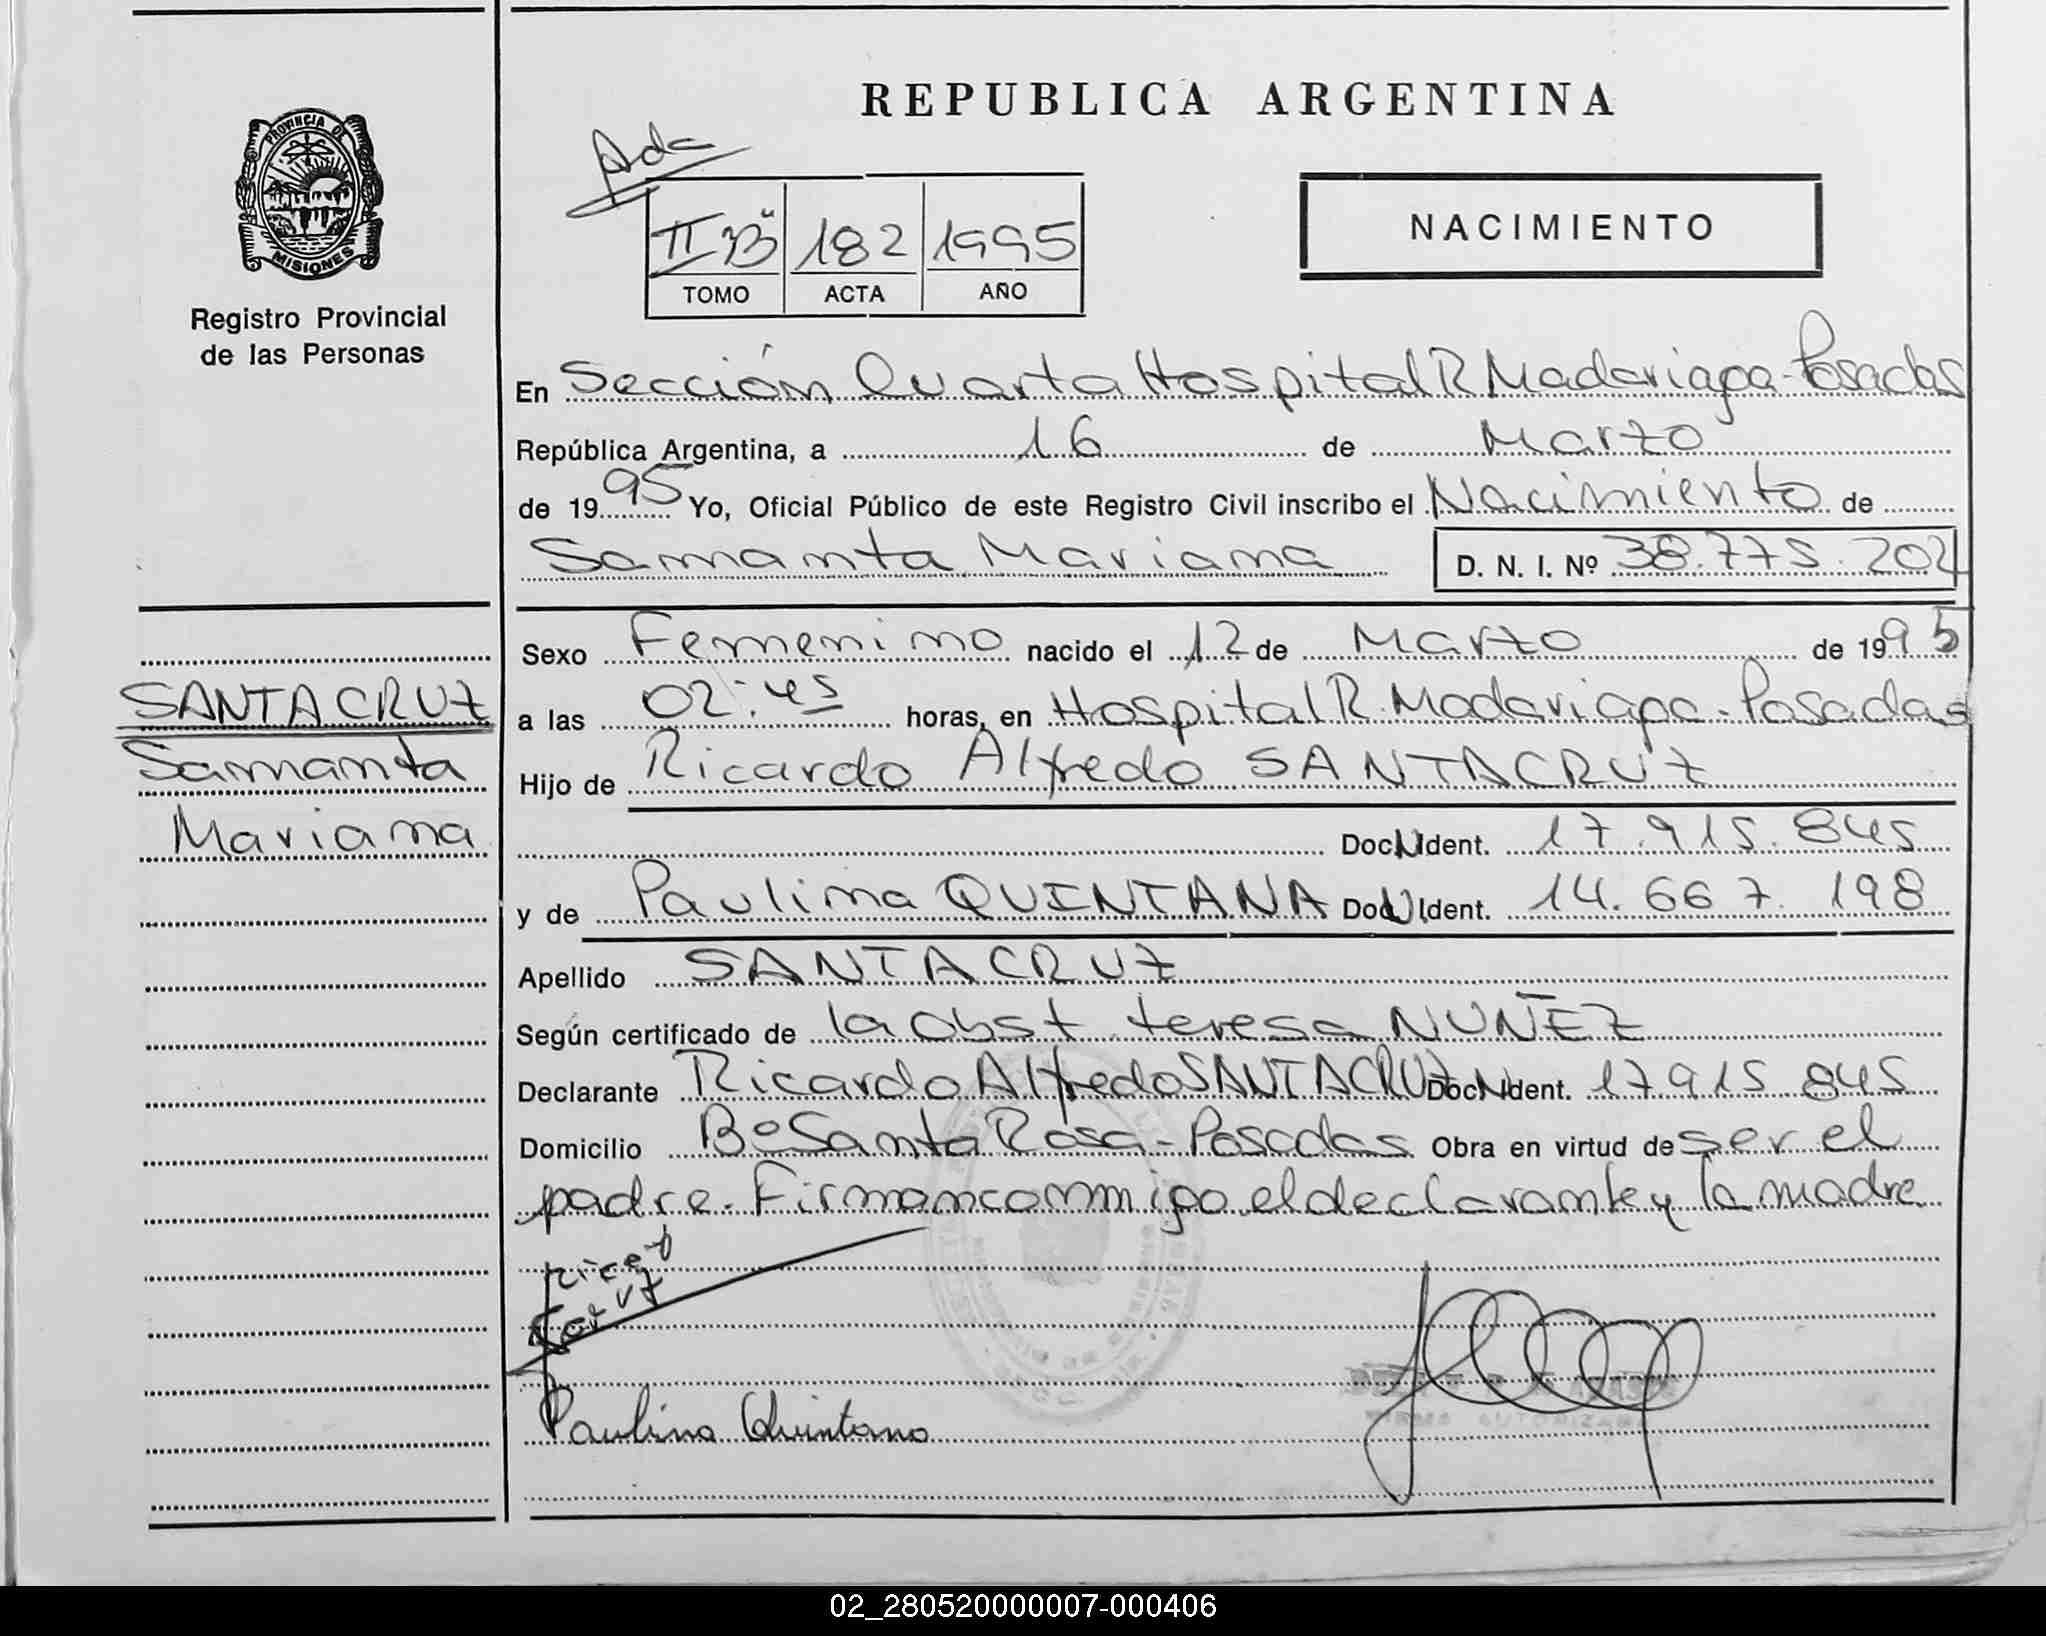 REPUBLICA ARGENTINA
PROVINCIA DE
MISIONES
Registro Provincial
de las Personas
Ada
II B 182 1995
TOMO ACTA AÑO
NACIMIENTO
En Sección Cuarta Hospital R Madariaga - Posadas
República Argentina, a 16 de Marzo
de 1995 Yo, Oficial Público de este Registro Civil inscribo el Nacimiento de
Samanta Mariana D. N. I. Nº 38.775.202
Sexo Femenino nacido el 12 de Marzo de 1995
SANTACRUZ
Samanta
Mariana
a las 02:45 horas, en Hospital R. Madariaga - Posadas
Hijo de Ricardo Alfredo SANTACRUZ
Doc N Ident. 17.915.845
y de Paulina QUINTANA Doc N Ident. 14.667.198
Apellido SANTACRUZ
Según certificado de la obst teresa NUÑEZ
Declarante Ricardo Alfredo SANTACRUZ Doc N Ident. 17.915.845
Domicilio Bº Santa Rosa - Posadas Obra en virtud de ser el
padre. Firman conmigo el declarante y la madre
Paulina Quintana
02_280520000007-000406